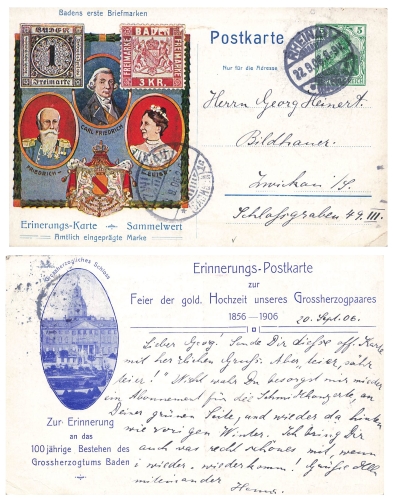 Badens erste Briefmarken
BADEN
1
Freimarke
BADEN
FREIMARKE
FREIMARKE
3 KR.
CARL FRIEDRICH
FRIEDRICH
LUISE
Erinerungs-Karte Sammelwert
Amtlich eingeprägte Marke
Postkarte
Nur für die Adresse
RHEINAU
22.9.06
5
Herrn Georg Heinert.
Bildhauer.
Zwickau i/S.
Schlossgraben 49 III.
Grossherzogliches Schloss
Zur Erinnerung
an das
100jährige Bestehen des
Grossherzogtums Baden
Erinnerungs-Postkarte
zur
Feier der gold. Hochzeit unseres Grossherzogpaares
1856—1906
20. Sept. 06.
Lieber Georg! Sende Dir diese off. Karte
mit herzlichem Gruß. Aber "leier, sahr
leier!" Nicht wahr Du besorgst mir wieder
ein Abonnement für die Schmittkonzerte, an
Deiner grünen Seite, und wieder da hinten
wie vorigen Winter. Ich bring Dir
auch was recht schönes mit, wenn
i wieder wiederkomm! Grüße Alle
miteinander